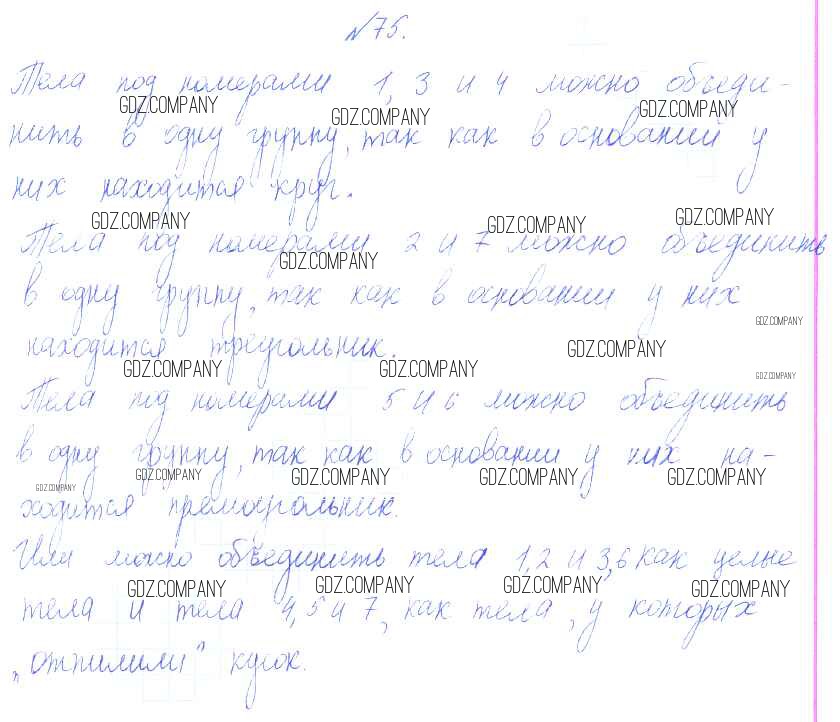 №75.
Тела под номерами 1, 3 и 4 можно объеди-
GDZ.COMPANY GDZ.COMPANY GDZ.COMPANY
нить в одну группу, так как в оснований у
них находится круг.
GDZ.COMPANY GDZ.COMPANY GDZ.COMPANY
Тела под номерами 2 и 7 можно объединить
GDZ.COMPANY
в одну группу, так как в основании у них
GDZ.COMPANY
находится треугольник.
GDZ.COMPANY
GDZ.COMPANY GDZ.COMPANY GDZ.COMPANY
Тела под номерами 5 и 6 можно объединить
в одну группу, так как в основании у них на-
GDZ.COMPANY GDZ.COMPANY GDZ.COMPANY GDZ.COMPANY GDZ.COMPANY
ходится прямоугольник.
Или можно объединить тела 1,2 и 3,6 как целые
GDZ.COMPANY GDZ.COMPANY GDZ.COMPANY GDZ.COMPANY
тела и тела 4,5 и 7, как тела, у которых
„отпилили" кусок.